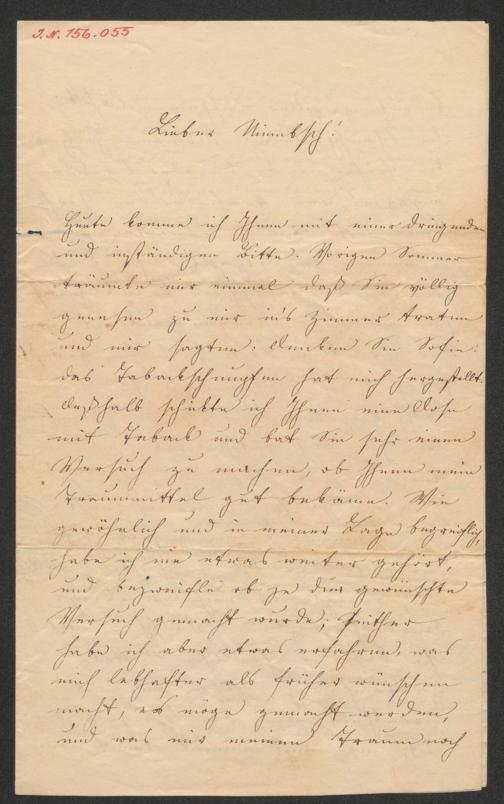 J.N. 156.055
Lieber Niembsch!
Heute komme ich Ihnen mit einer dringenden
und inständigen Bitte. Vorigen Sommer
träumte mir einmal daß Sie völlig
genesen zu mir in's Zimmer traten
und mir sagten: denken Sie Sofie:
das Tabackschnupfen hat mich hergestellt.
deßhalb schickte ich Ihnen eine Dose
mit Taback und bat Sie sehr einen
Versuch zu machen, ob Ihnen mein
Traummittel gut bekäme. Wie
gewöhnlich und in meiner Lage begreiflich,
habe ich nie etwas weiter gehört,
und bezweifle ob je der gewünschte
Versuch gemacht wurde; seither
habe ich aber etwas erfahren, was
mich lebhafter als früher wünschen
macht, es möge gemacht werden,
und was mir meinen Traum noch